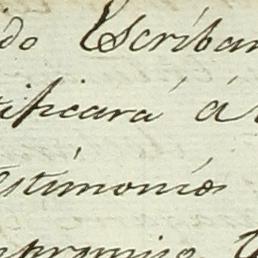 ido Escriban
tificará á
estimonio